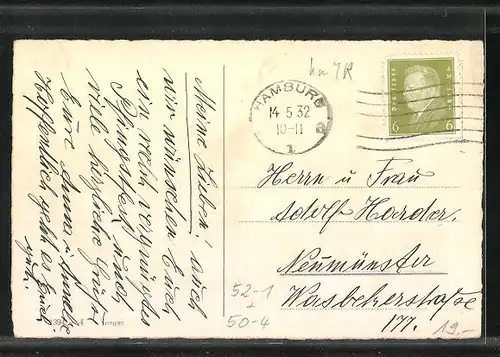 Meine Lieben! auch
wir wünschen Euch
ein recht vergnügtes
Pfingstfest und
viele herzliche Grüße
Eure Anna u.
Hoffentlich geht es Euch
gut.
HAMBURG
14.5.32
10-11
1
6
6
Herrn u Frau
Adolf Harder.
Neumünster
Wasbekerstraße
177.
52-1
50-4
19,-